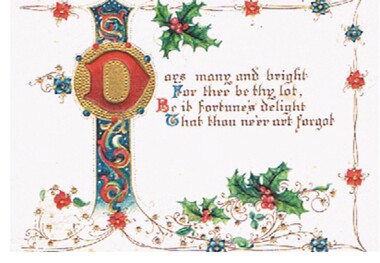 Days many and bright
For thee be thy lot,
Be it fortune's delight
That thou ne'er art forgot